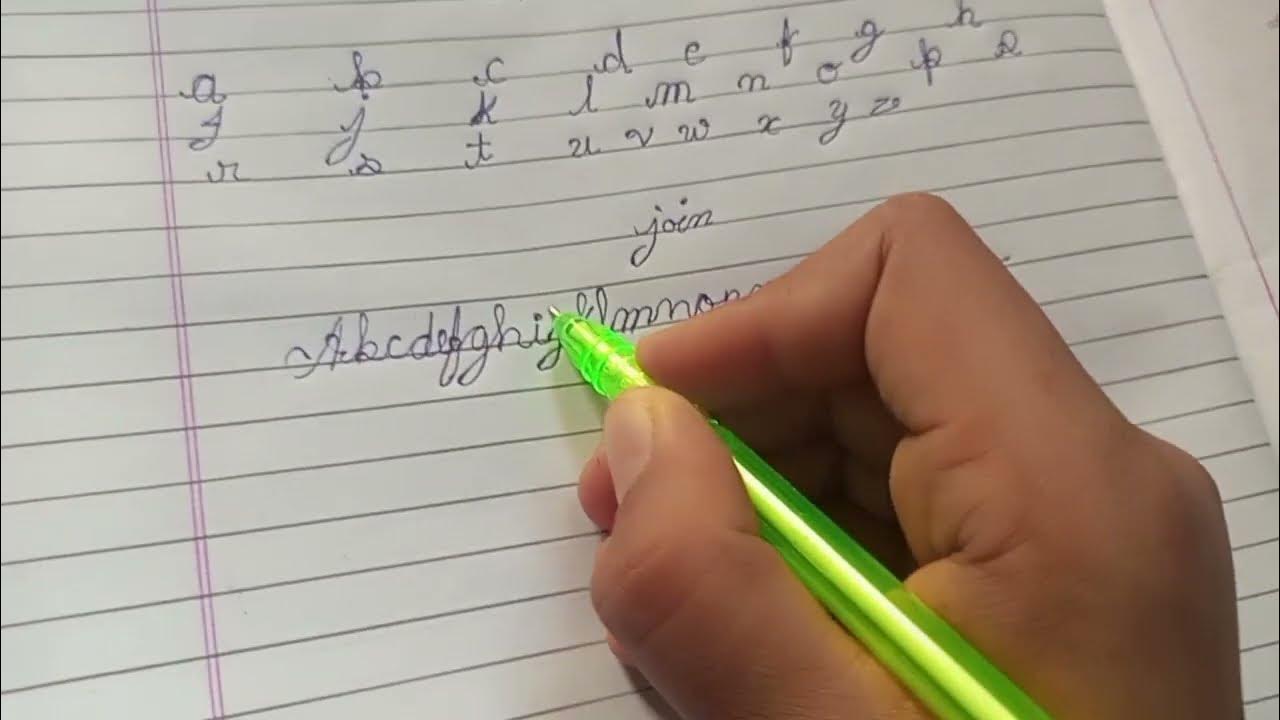 a b c d e f g h
i j k l m n o p q
r s t u v w x y z
join
Abcdefghijklmnop